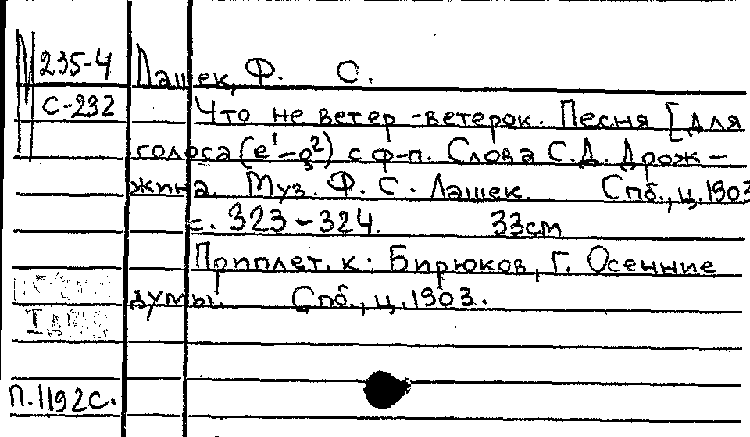 235-4 Лашек, Ф. С.
С-232 Что не ветер -ветерок. Песня [для
голоса (e¹-g²) с ф-п. Слова С.Д. Дрож-
жина. Муз. Ф. С. Лашек. Спб., ц. 1903
с. 323-324. 33см
Приплет. к: Бирюков, Г. Осенние
думы. Спб., ц. 1903.
П.1192с.